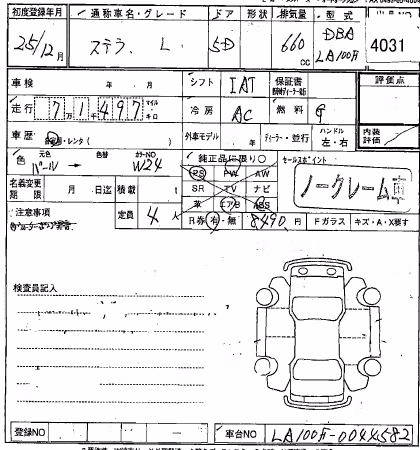 初度登録年月 通称車名・グレード ドア 形状 排気量 型式
25/12月 ステラ. L. 5D 660cc DBA LA100F 4031
車検 年 月 シフト IAT 保証書 評価点
走行 7万1千497 マイル キロ 冷房 AC 燃料 G
車歴 自家用・レンタ( ) 外車モデル 年 ディーラー・並行 ハンドル 左・右 内装評価
色 元色 パール → 色替 カラーNO W24 純正品に限り○ セールスポイント
名義変更期限 月 日迄 積載 t PS PW AW ノークレーム
SR TV ナビ
注意事項 定員 4人 革 エアB ABS
R券 有・無 8490円 Fガラス キズ・A・X要す
検査員記入
登録NO 車台NO LA100F-0044582